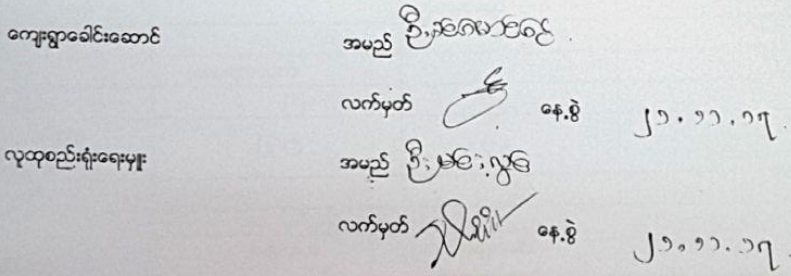 ကျေးရွာခေါင်းဆောင် အမည် ဦး
လက်မှတ် နေ့စွဲ ၂၁.၁၁.၁၇.
လူထုစည်းရုံးရေးမှူး အမည် ဦး
လက်မှတ် နေ့စွဲ ၂၁.၁၁.၁၇.